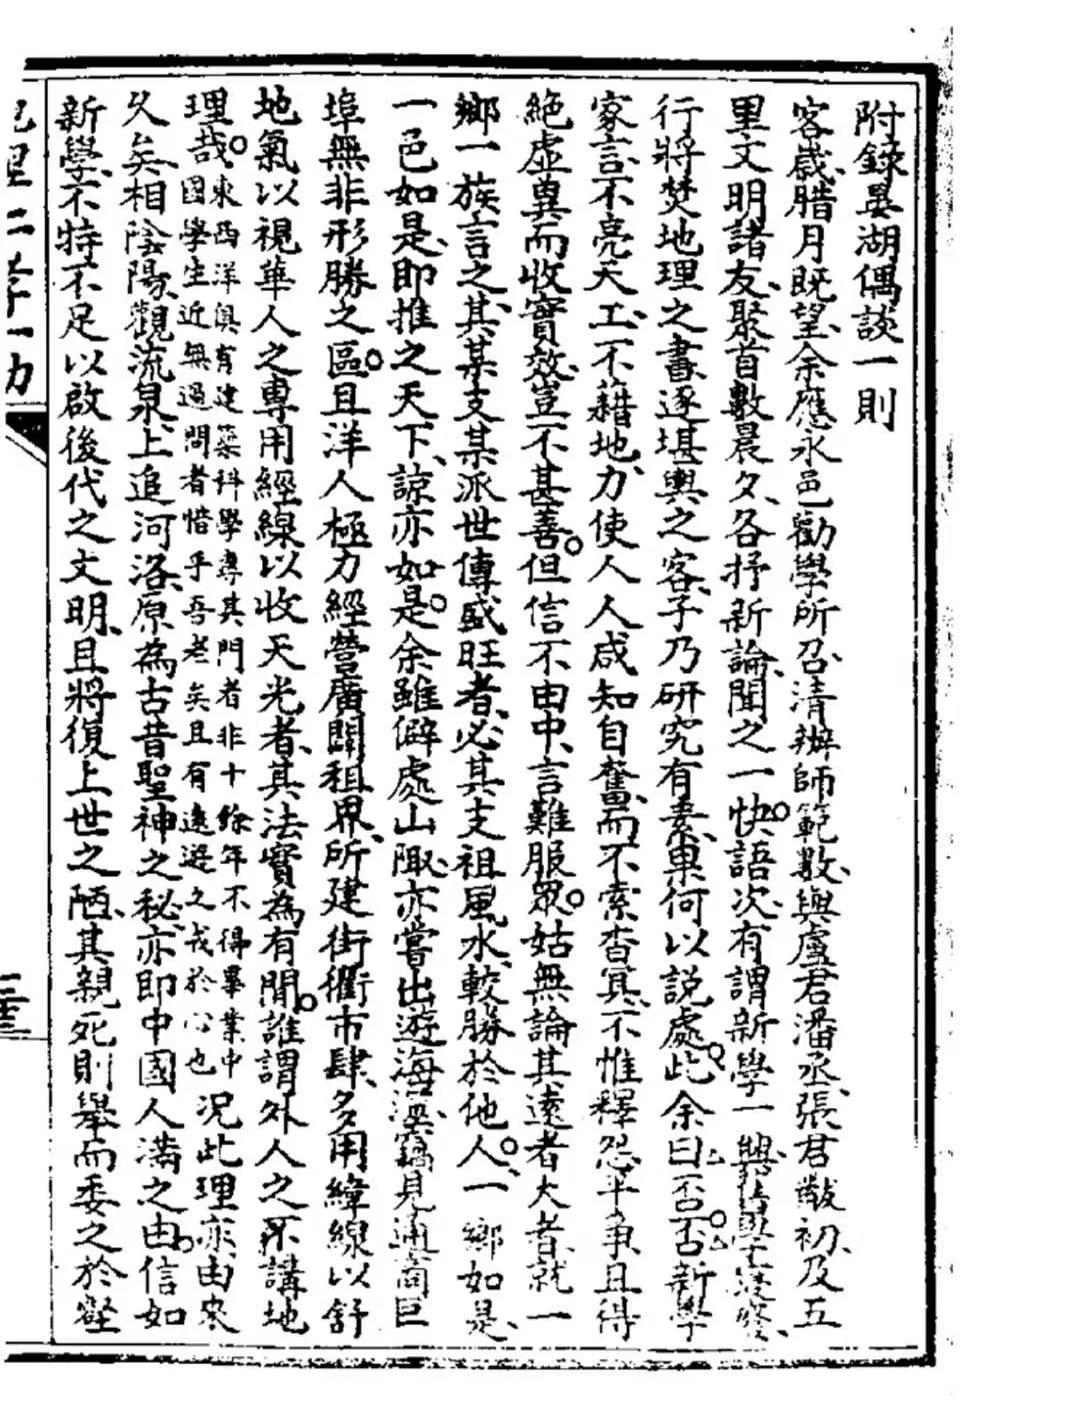 附錄晏湖偶談一則
客嵗腊月既望余應永邑勸學所召清辦師範數與盧君潘丞張君黻初及五
里文明諸友聚首數晨夕各抒新論聞之一快語次有謂新學一興舊學寖廢
行將焚地理之書逐堪輿之客子乃研究有素果何以說處此余曰否否新學
家言不亮天工不藉地力使人人咸知自奮而不索杳冥不惟釋怨平爭且得
絕虛糞而收實效豈不甚善但信不由中言難服眾姑無論其遠者大者就一
鄉一族言之其某支某派世傳盛旺者必其支祖風水較勝於他人一鄉如是
一邑如是即推之天下諒亦如是余雖僻處山陬亦嘗出遊海濱竊見通商巨
埠無非形勝之區且洋人極力經營廣闢租界所建街衢市肆多用緯線以舒
地氣以視華人之專用經線以收天光者其法實為有間誰謂外人之不講地
理哉東西洋俱有建築科學專其門者非十餘年不得畢業中國學生近無過問者惜乎吾老矣且有遠遊之戒於心也況此理亦由來
久矣相陰陽觀流泉上追河洛原為古昔聖神之秘亦即中國人滿之由信如
新學不特不足以啟後代之文明且將復上世之陋其親死則舉而委之於壑
地理二孝一功